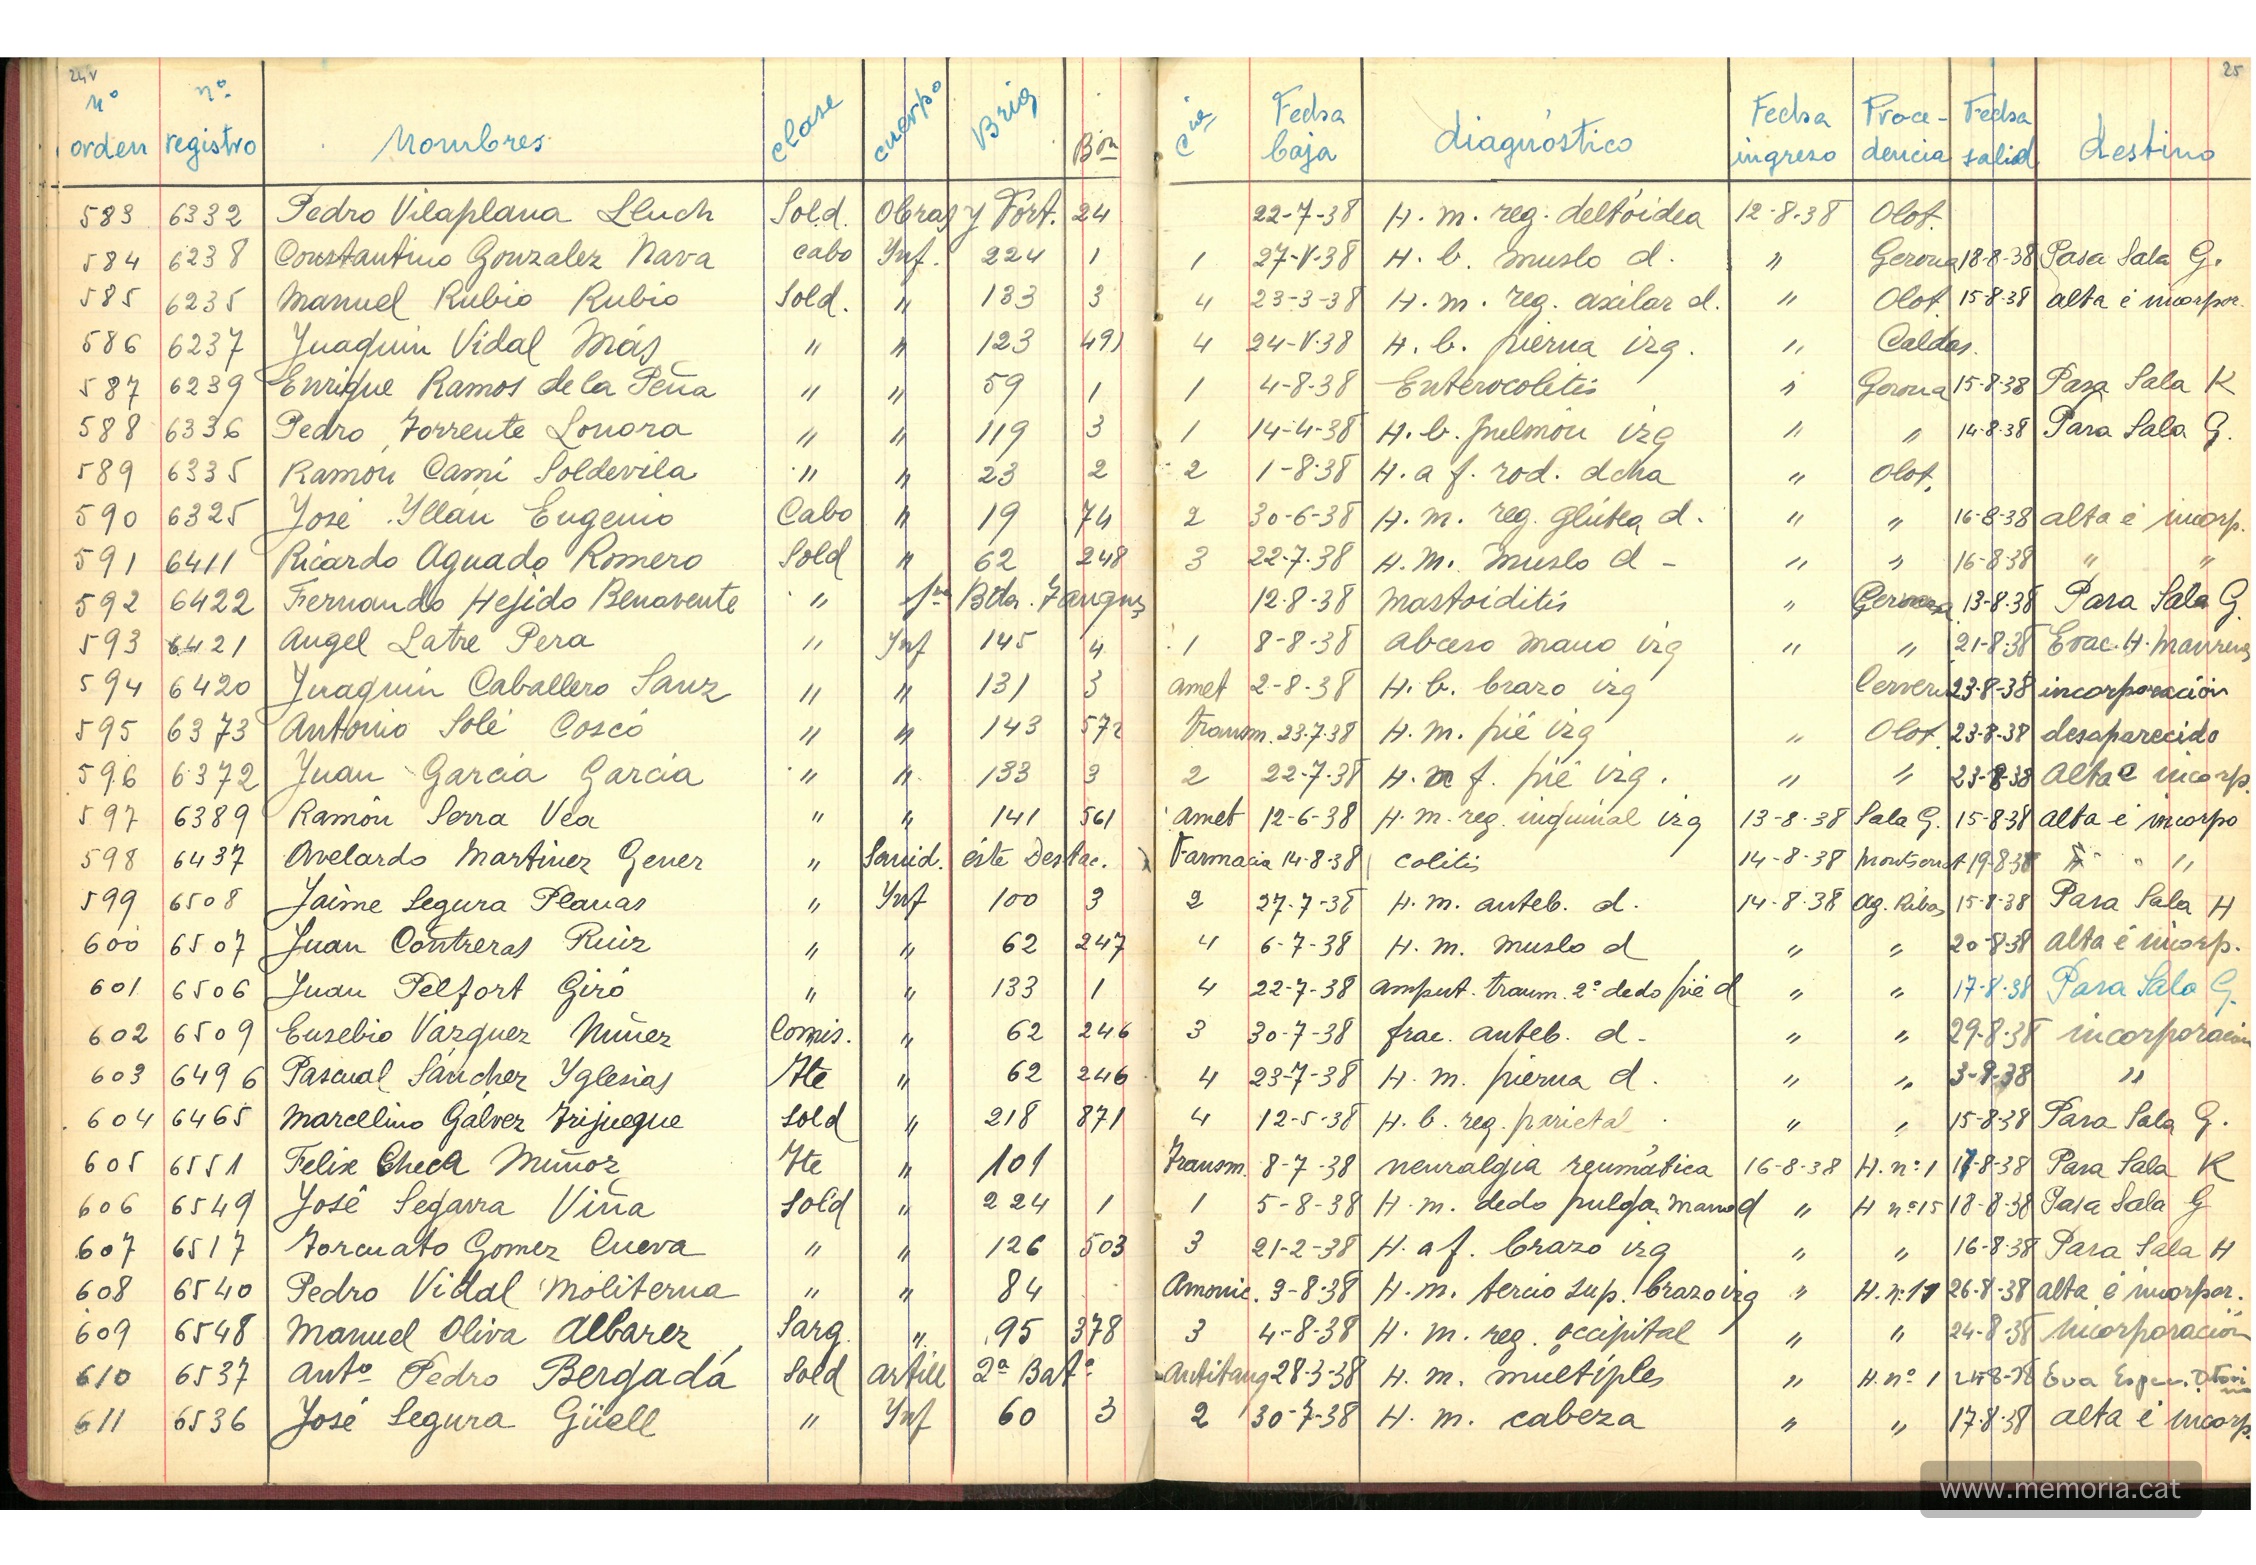 24v 25
nº orden nº registro Nombres clase cuerpo Brig Bón Cía Fecha baja diagnóstico Fecha ingreso Procedencia Fecha salid destino
583 6332 Pedro Vilaplana Lluch Sold. Obras y Fort. 24 22-7-38 H. m. reg. deltóidea 12-8-38 Olot.
584 6238 Constantino Gonzalez Nava cabo Ynf. 224 1 1 27-V-38 H. b. muslo d. " Gerona 18-8-38 Pasa Sala G.
585 6235 Manuel Rubio Rubio Sold. " 133 3 4 23-3-38 H. m. reg. axilar d. " Olot. 15-8-38 alta é incorpor.
586 6237 Juaquin Vidal Más " " 123 491 4 24-V-38 H. b. pierna izq. " Caldas.
587 6239 Enrique Ramos de la Peña " " 59 1 1 4-8-38 Enterocolitis " Gerona 15-8-38 Pasa Sala K
588 6336 Pedro Torrente Lonora " " 119 3 1 14-4-38 H. b. pulmón izq " " 14-8-38 Pasa Sala G.
589 6335 Ramón Camí Soldevila " " 23 2 2 1-8-38 H. a f. rod. dcha " Olot.
590 6325 José Yllán Eugenio Cabo " 19 74 2 30-6-38 H. m. reg. glútea d. " " 16-8-38 alta é incorp.
591 6411 Ricardo Aguado Romero Sold " 62 248 3 22-7-38 H. m. muslo d - " " 16-8-38 " "
592 6422 Fernando Hejido Benavente " Bta. 12-8-38 Mastoiditis " Gerona 13-8-38 Pasa Sala G.
593 6421 Angel Latre Pera " Ynf 145 4 1 8-8-38 abceso mano izq " " 21-8-38 Evac. H. Manresa
594 6420 Juaquin Caballero Sanz " " 131 3 amet 2-8-38 H. b. brazo izq 23-8-38 incorporación
595 6373 Antonio Solé Coscó " " 143 572 transm. 23-7-38 H. m. pié izq " Olot. 23-8-38 desaparecido
596 6372 Juan Garcia Garcia " " 133 3 2 22-7-38 H. f. pié izq. " " 23-8-38 alta e incorp.
597 6389 Ramón Serra Vea " " 141 561 amet 12-6-38 H. m. reg. inguinal izq 13-8-38 Sala G. 15-8-38 alta é incorpo
598 6437 Avelardo Martinez Gener " Sanid. éste Destac. Farmacia 14-8-38 colitis 14-8-38 Montserrat 19-8-38 " " "
599 6508 Jaime Segura Planas " Ynf 100 3 2 27-7-38 H. m. anteb. d. 14-8-38 Ag. Ribas 15-8-38 Pasa Sala H
600 6507 Juan Contreras Ruiz " " 62 247 4 6-7-38 H. m. muslo d " " 20-8-38 alta é incorp.
601 6506 Juan Pelfort Giró " " 133 1 4 22-7-38 amput. traum. 2º dedo pié d " " 17-8-38 Pasa Sala G.
602 6509 Eusebio Vázquez Núñez Comis. " 62 246 3 30-7-38 frac. anteb. d - " " 29-8-38 incorporacion
603 6496 Pascual Sánchez Yglesias Tte " 62 246 4 23-7-38 H. m. pierna d. " " 3-9-38 "
604 6465 Marcelino Gálvez Trijueque Sold " 218 871 4 12-5-38 H. b. reg. parietal " " 15-8-38 Pasa Sala G.
605 6551 Felix Checa Muñoz Tte " 101 Transm. 8-7-38 neuralgia reumática 16-8-38 H. nº 1 17-8-38 Pasa Sala K
606 6549 José Segarra Viña Sold " 224 1 1 5-8-38 H. m. dedo pulgar mano d " H nº 15 18-8-38 Pasa Sala G
607 6517 Torcuato Gomez Cueva " " 126 503 3 21-2-38 H. a f. brazo izq " " 16-8-38 Pasa Sala H
608 6540 Pedro Vidal Moliterna " " 84 Amonic. 3-8-38 H. m. tercio sup. brazo izq " H. nº 11 26-8-38 alta é incorpor.
609 6548 Manuel Oliva Albarez Sarg. " 95 378 3 4-8-38 H. m. reg. occipital " " 24-8-38 incorporación
610 6537 Antº Pedro Bergadá Sold Artill 2ª Batª Antitanq 28-3-38 H. m. múltiples " H. nº 1 Eva
611 6536 José Segura Güell " Ynf 60 3 2 30-7-38 H. m. cabeza " " 17-8-38 alta é incorp.
www.memoria.cat